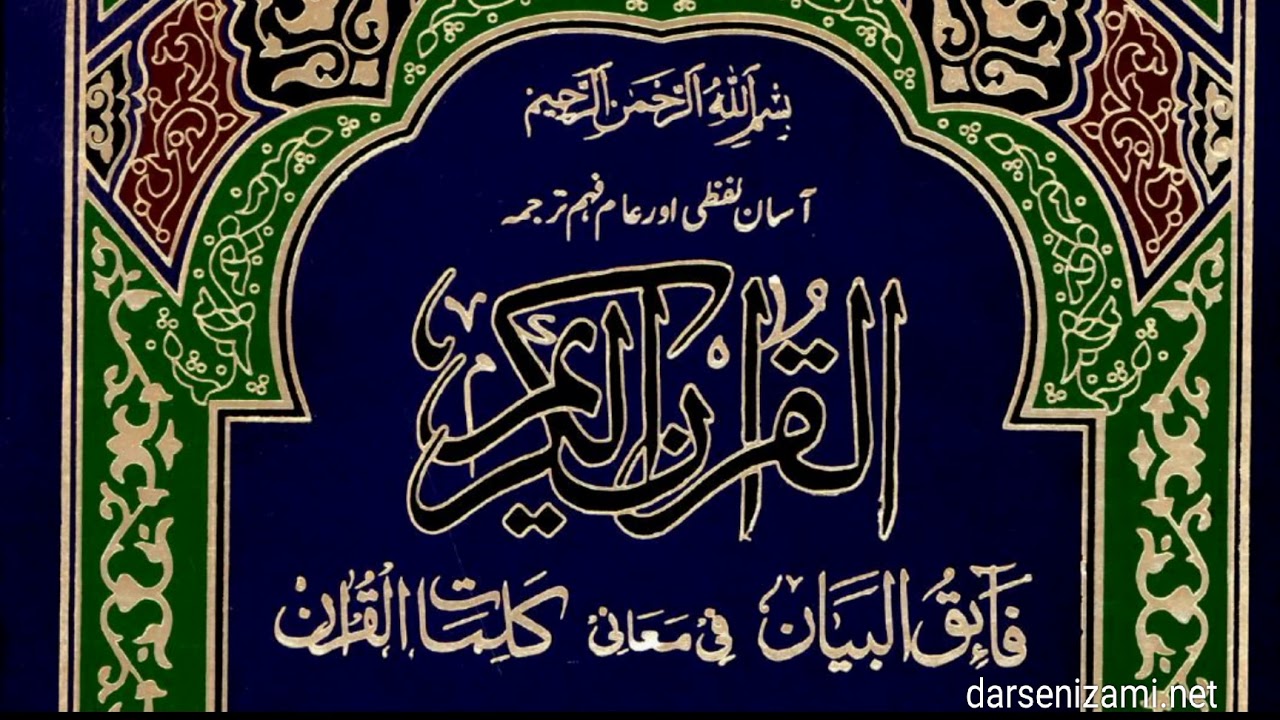 بِسْمِ اللهِ الرَّحْمٰنِ الرَّحِيْمِ
آسان لفظی اور عام فہم ترجمہ
القُرآن الكريم
فَآئِقُ البَيَان فِیْ مَعَانِیْ كَلِمَاتِ الْقُرْاٰن
darsenizami.net